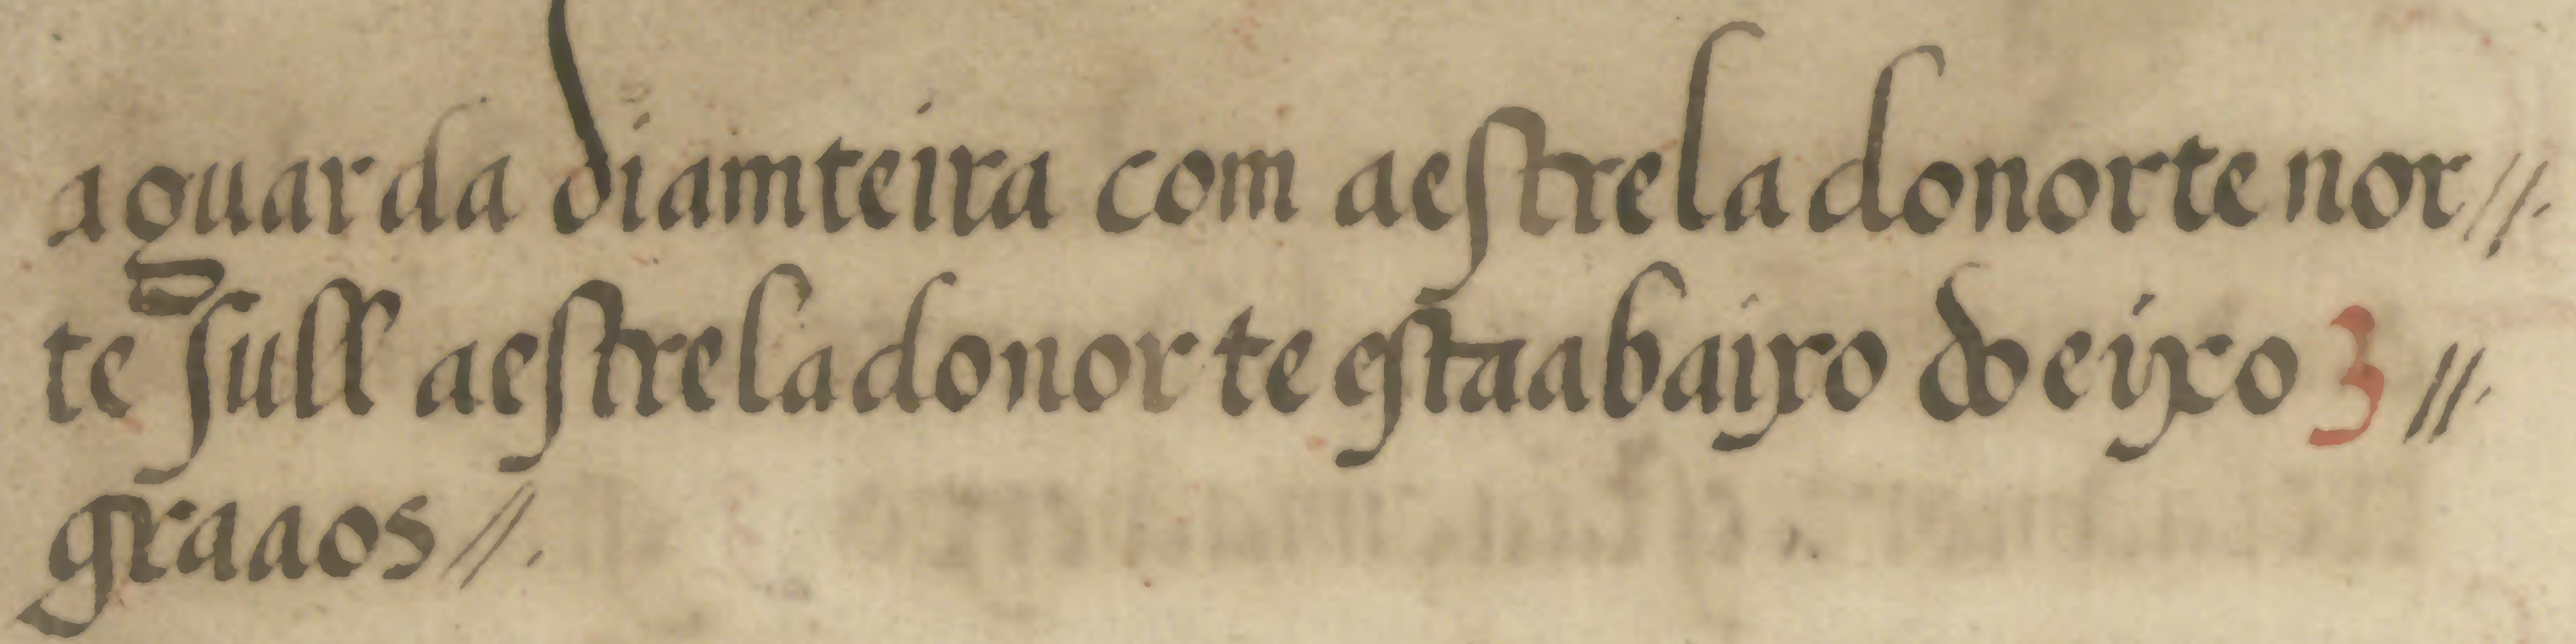 a guarda diamteira com a estrela do norte nor//.
te sull a estrela do norte esta abaijxo do eijxo 3 //.
graaos //.